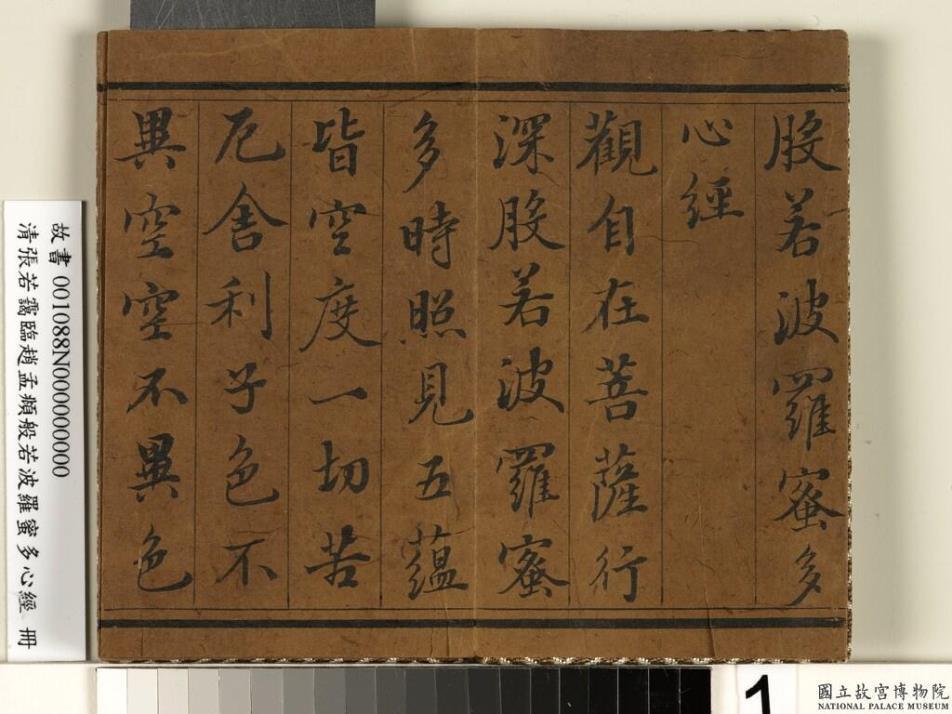 般若波羅蜜多
心經
觀自在菩薩行
深般若波羅蜜
多時照見五蘊
皆空度一切苦
厄舍利子色不
異空空不異色
故書 001088N000000000
清張若靄臨趙孟頫般若波羅蜜多心經 冊
1
國立故宮博物院
NATIONAL PALACE MUSEUM